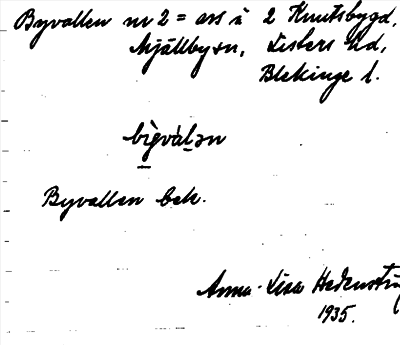 Byvallen nr 2 = ars i 2 Knutsbygd,
Mjällby sn, Listers hd,
Blekinge l.
bi̬gvàlən
Byvallen bek.
Anna-Lisa Hedenströ
1935.